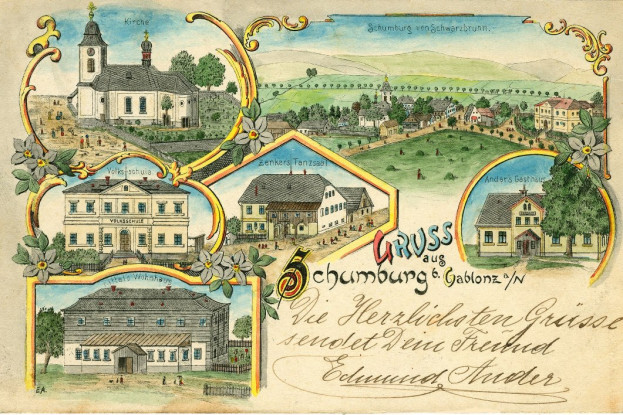 Kirche
Schumburg von Schwarzbrunn.
Volksschule
VOLKSSCHULE
Zenkers Tanzsaal
Anders Gasthaus
Wohnhaus
GRUSS
aus
Schumburg b. Gablonz a/N
Die Herzlichsten Grüsse
sendet Dein Freund
Edmund Ander
E.A.